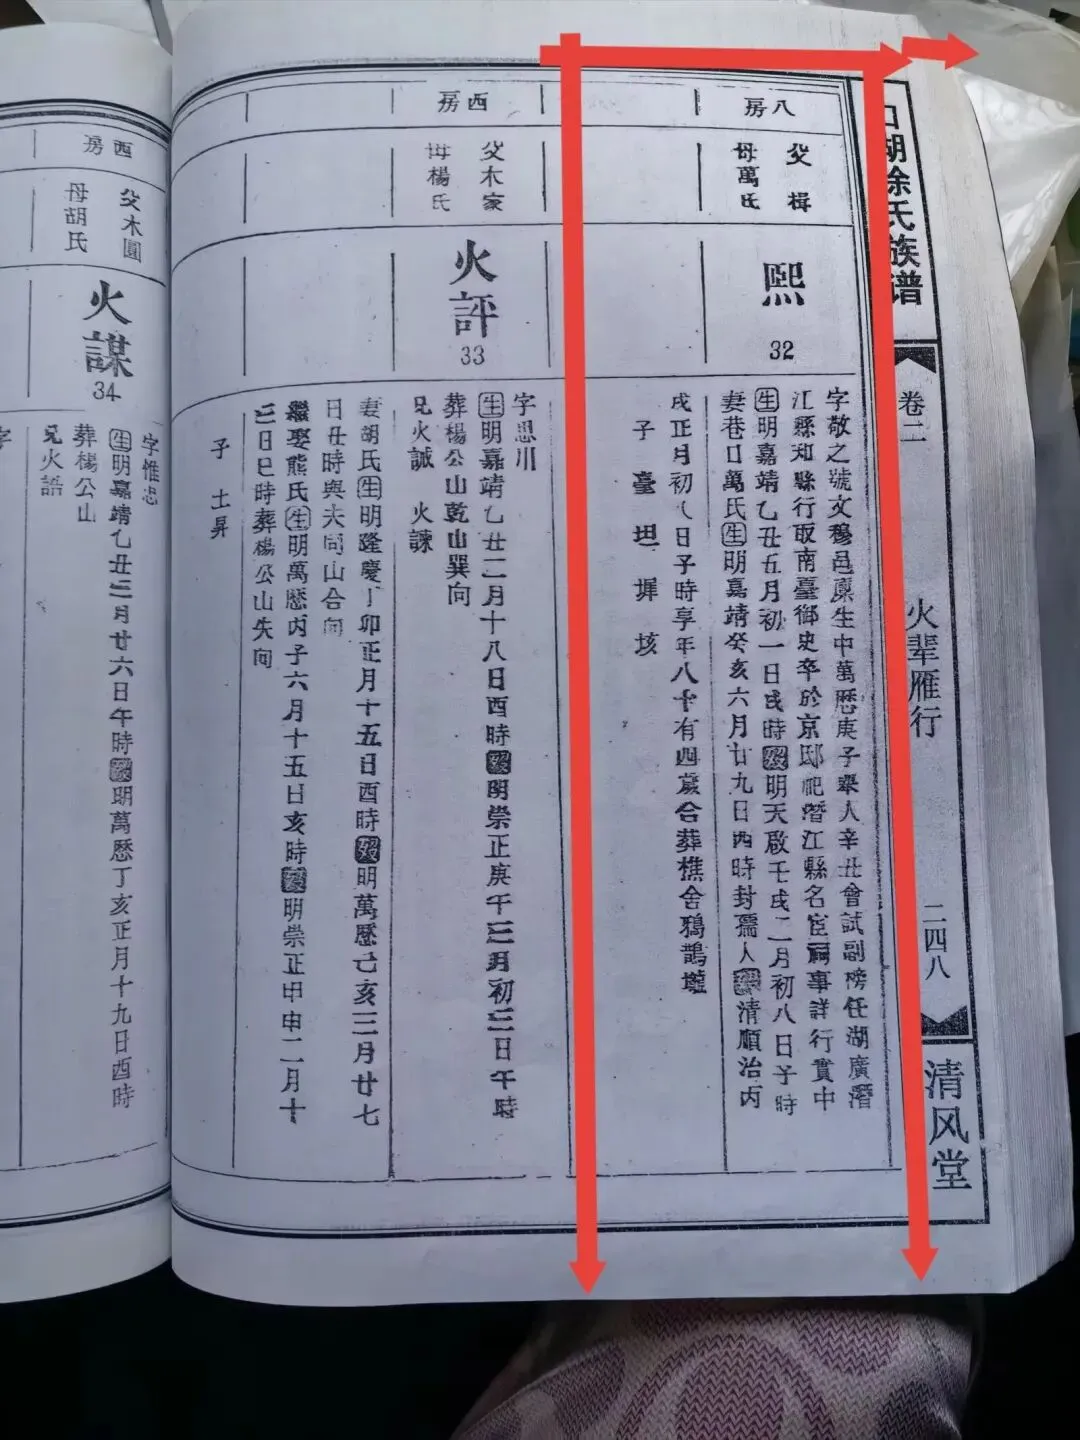 口湖涂氏族谱
卷二
火辈雁行
二四八
清风堂
八房
父楫
母萬氏
熙
32
字敬之號文穆邑廩生中萬歷庚子舉人辛丑會試副榜任湖廣潛
江縣知縣行取南臺御史卒於京邸祀潛江縣名宦祠事詳行實中
生明嘉靖乙丑五月初一日戌時歿明天啟壬戌二月初八日子時
妻巷口萬氏生明嘉靖癸亥六月廿九日酉時封孺人歿清順治丙
戌正月初八日子時享年八十有四歲合葬樵舍鴉鵲壠
子臺坦墀垓
西房
父木家
母楊氏
火評
33
字思川
生明嘉靖乙丑二月十八日酉時歿明崇正庚午三月初三日午時
葬楊公山乾山巽向
兄火誠 火諫
妻胡氏生明隆慶丁卯正月十五日酉時歿明萬歷己亥三月廿七
日丑時與夫同山合向
繼娶熊氏生明萬歷丙子六月十五日亥時歿明崇正甲申二月十
三日巳時葬楊公山失向
子 土昇
西房
父木圓
母胡氏
火謀
34
字惟忠
生明嘉靖乙丑三月廿六日午時歿明萬歷丁亥正月十九日酉時
葬楊公山
兄火語
字